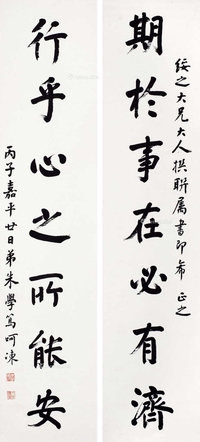 綏之大兄大人撰聯屬書即希正之
期於事在必有濟
行乎心之所能安
丙子嘉平廿日弟朱學篤呵凍